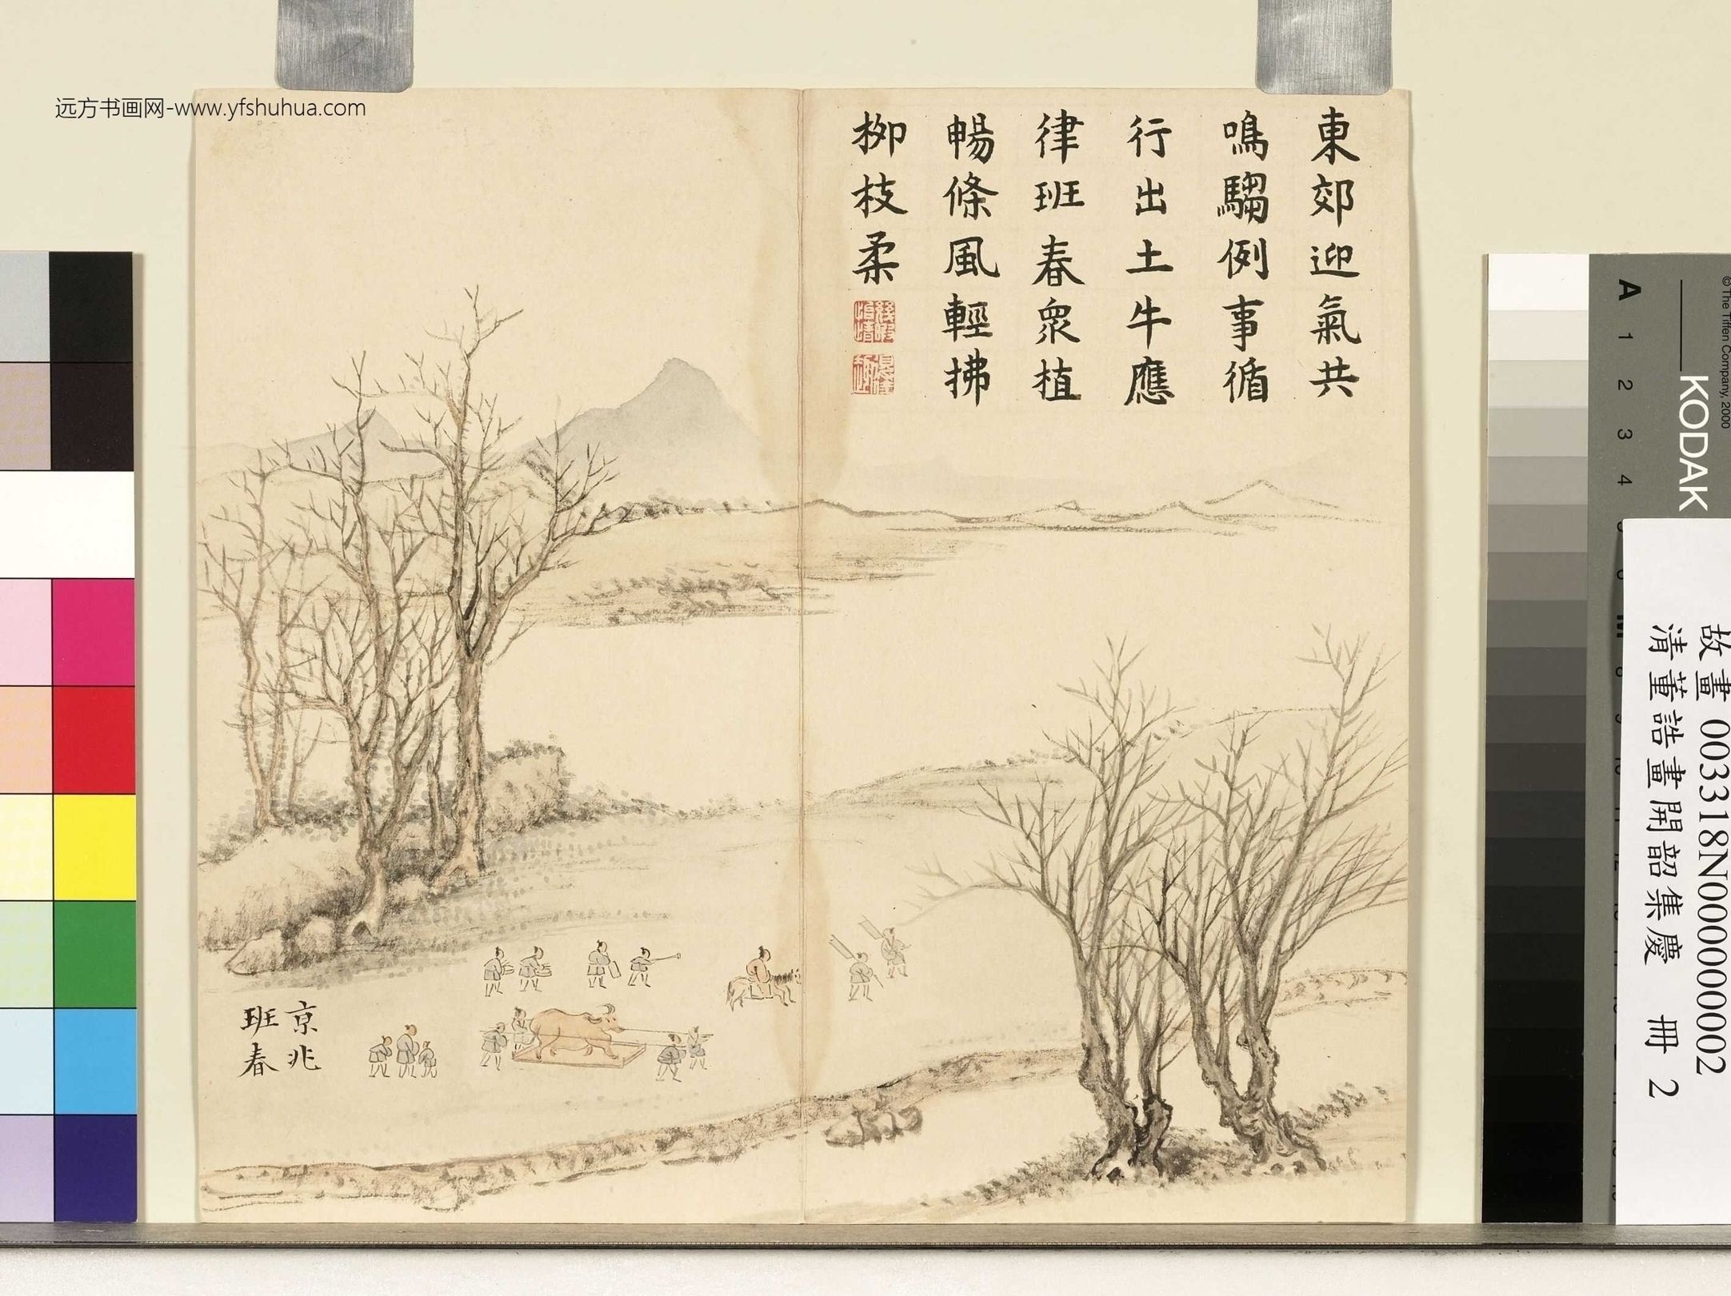 远方书画网-www.yfshuhua.com
東郊迎氣共
鳴騶例事循
行出土牛應
律班春眾植
暢條風輕拂
柳枝柔
京兆
班春
KODAK
© The Tiffen Company, 2000
A 1 2 3 4
M
故畫 003318N000000002
清董誥畫開韶集慶 冊 2